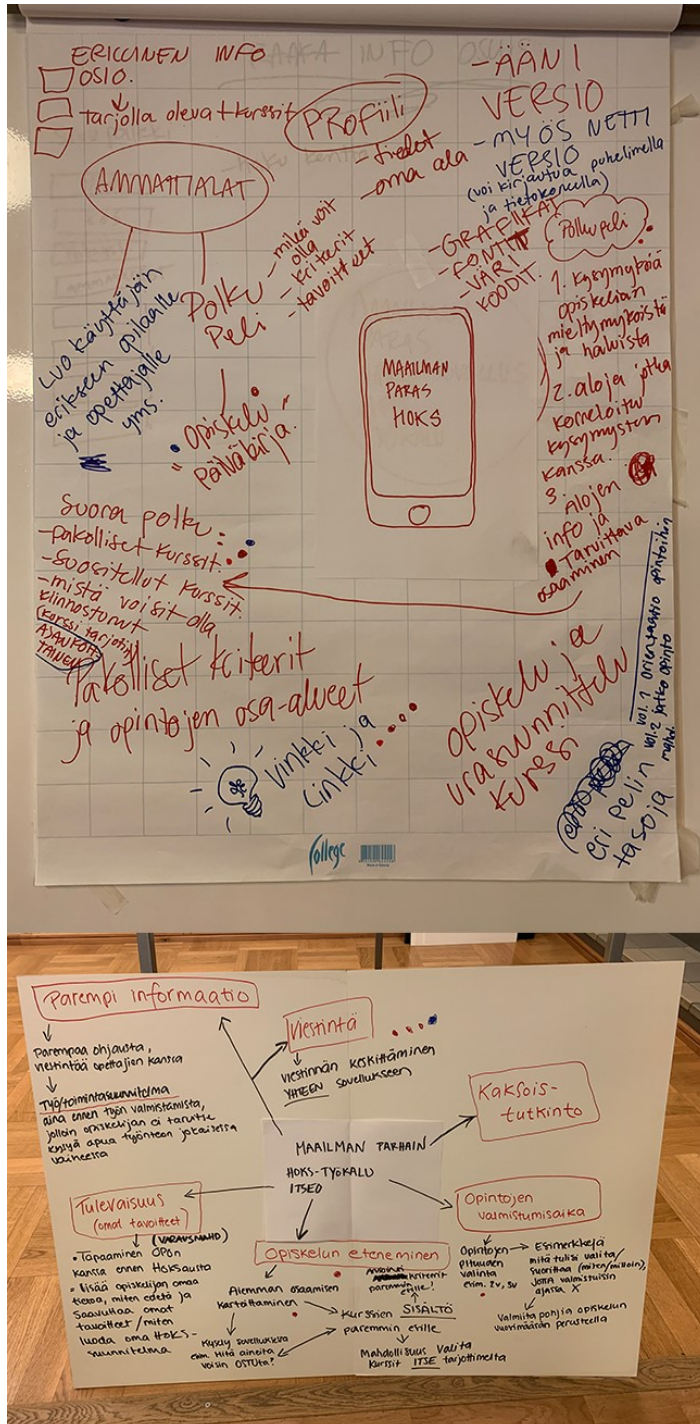 ERILLINEN INFO
OSIO.
tarjolla olevat kurssit
PROFiili
- tiedot
- oma ala
- ÄÄNI
VERSIO
- MYÖS NETTI
VERSIO
(voi kirjautua puhelimella
ja tietokoneella)
- GRAFIIKAT
- FONTIT
- VÄRI
KOODIT.
AMMATTIALAT
LUO käyttäjän
erikseen opilaalle
ja opettajalle
yms.
POLKU
Peli
- mikä voit
olla
- kriteerit
- tavoitteet
"Opiskelu
päiväkirja."
MAAILMAN
PARAS
HOKS
Polku peli
1. Kysymyksiä
opiskelian
mieltymyksistä
ja haluista
2. aloja jotka
korreloitu
kysymysten
kanssa.
3. Alojen
info ja
Tarvittava
osaaminen
Suora polku:
- pakolliset kurssit.
- Suositellut kurssit.
- mistä voisit olla
kiinnostunut
(kurssi tarjotin)
AJANKOH-
TAINEN
Pakolliset kriteerit
ja opintojen osa-alueet
vinkki ja
Linkki
opiskelu ja
urasuunnittelu
kurssi
eri pelin
tasoja
vol. 1 orientaatio opintoihin
vol. 2 jatko opinto
mahd.
College
Parempi informaatio
Parempaa ohjausta,
viestintää opettajien kanssa
Työ/toimintasuunnitelma
aina ennen työn valmistamista,
jolloin opiskelijan ei tarvitse
kysyä apua työnteon jokaisessa
vaiheessa
Viestintä
viestinnän keskittäminen
YHTEEN sovellukseen
Kaksois-
tutkinto
MAAILMAN PARHAIN
HOKS-TYÖKALU
ITSEO
Tulevaisuus
(omat tavoitteet)
(VARAUSMAHD)
• Tapaaminen OPOn
kanssa ennen HOKSausta
• Lisää opiskelijan omaa
tietoa, miten edetä ja
saavuttaa omat
tavoitteet / miten
luoda oma HOKS-
suunnitelma
Opiskelun eteneminen
Aiemman osaamisen
kartoittaminen
Kysely sovelluksessa
esim. Mitä aineita
voisin OSTUta?
Arvioinn
kriteerit
paremmin
esille!
Kurssien SISÄLTÖ
paremmin esille
Mahdollisuus valita
kurssit ITSE tarjottimelta
Opintojen
valmistumisaika
Opintojen
pituuden
valinta
esim. 2v, 3v
Esimerkkejä
mitä tulisi valita/
suorittaa (miten/milloin),
jotta valmistuisin
ajassa X
Valmiita pohjia opiskelun
vuosimäärän perusteella